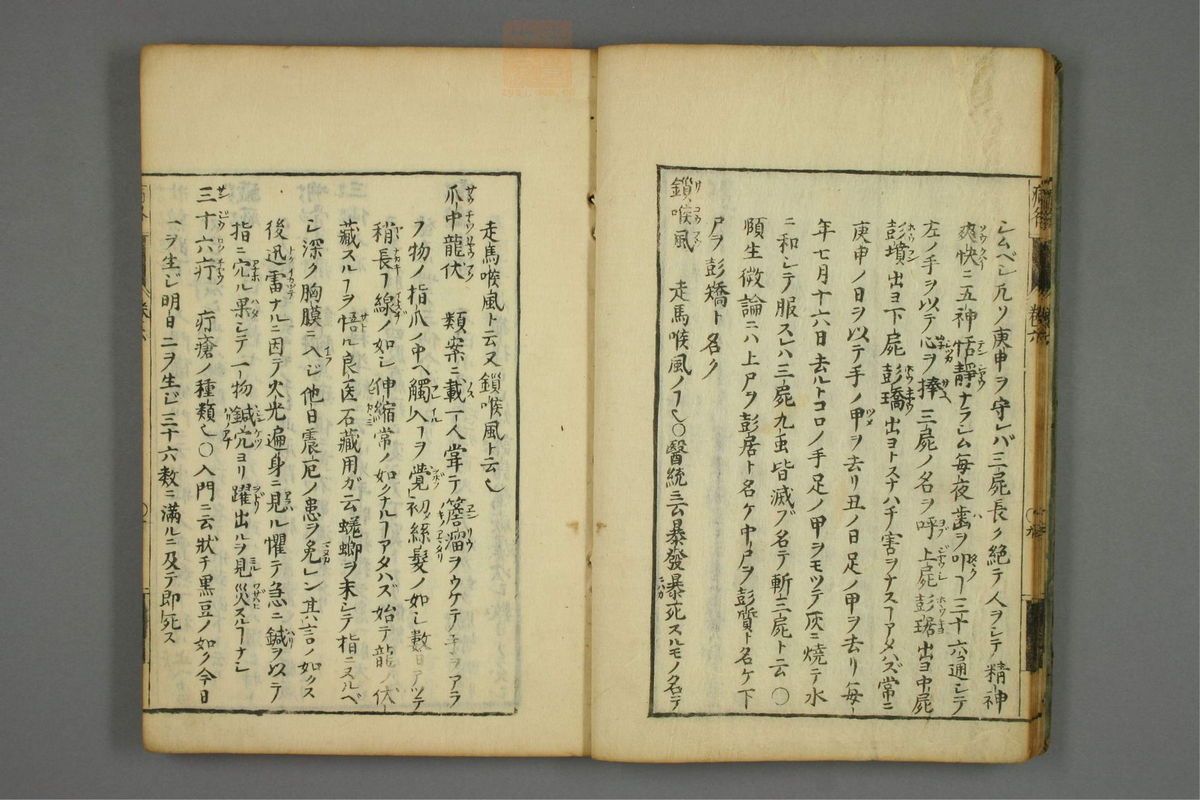 シムベシ凡ソ庚申ヲ守レバ三屍長ク絶テ人ヲシテ精神
爽快ニ五神恬靜ナラシム毎夜歯ヲ叩ヿ三十六通シテ
左ノ手ヲ以テ心ヲ捧三屍ノ名ヲ呼上屍彭琚出ヨ中屍
彭墳出ヨ下屍彭璚出ヨトスナハチ害ヲナスヿアタハズ常ニ
庚申ノ日ヲ以テ手ノ甲ヲ去リ丑ノ日足ノ甲ヲ去リ毎
年七月十六日去ルトコロノ手足ノ甲ヲモツテ灰ニ焼テ水
ニ和シテ服スレハ三屍九虫皆滅ブ名テ斬三屍ト云〇
頤生微論ニハ上尸ヲ彭居ト名ケ中尸ヲ彭質ト名ケ下
尸ヲ彭矯ト名ク
鎖喉風 走馬喉風ノヿ也〇醫統ニ云暴發暴死スルモノ名テ
走馬喉風ト云又鎖喉風ト云也
爪中龍伏 類案ニ載一人甞テ簷溜ヲウケテ手ヲアラ
フ物ノ指爪ノ中ヘ觸入ヿヲ覺初絲髮ノ如シ數日アツテ
稍長ヿ線ノ如シ伸縮常ノ如クナルヿアタハズ始テ龍ノ伏
藏スルヿヲ悟ル良医石藏用ガ云蜣蜋ヲ末シテ指ニヌルベ
シ深ク胸膜ニ入レジ他日震厄ノ患ヲ免レン其言ノ如クス
後迅雷ナルニ因テ火光遍身ニ見ル懼テ急ニ鍼ヲ以テ
指ニ穴ル果シテ一物鍼穴ヨリ躍出ルヲ見災スルヿナシ
三十六疔 疔瘡ノ種類也〇入門ニ云狀チ黒豆ノ如ク今日
一ヲ生ジ明日二ヲ生ジ三十六数ニ満ルニ及テ即死ス